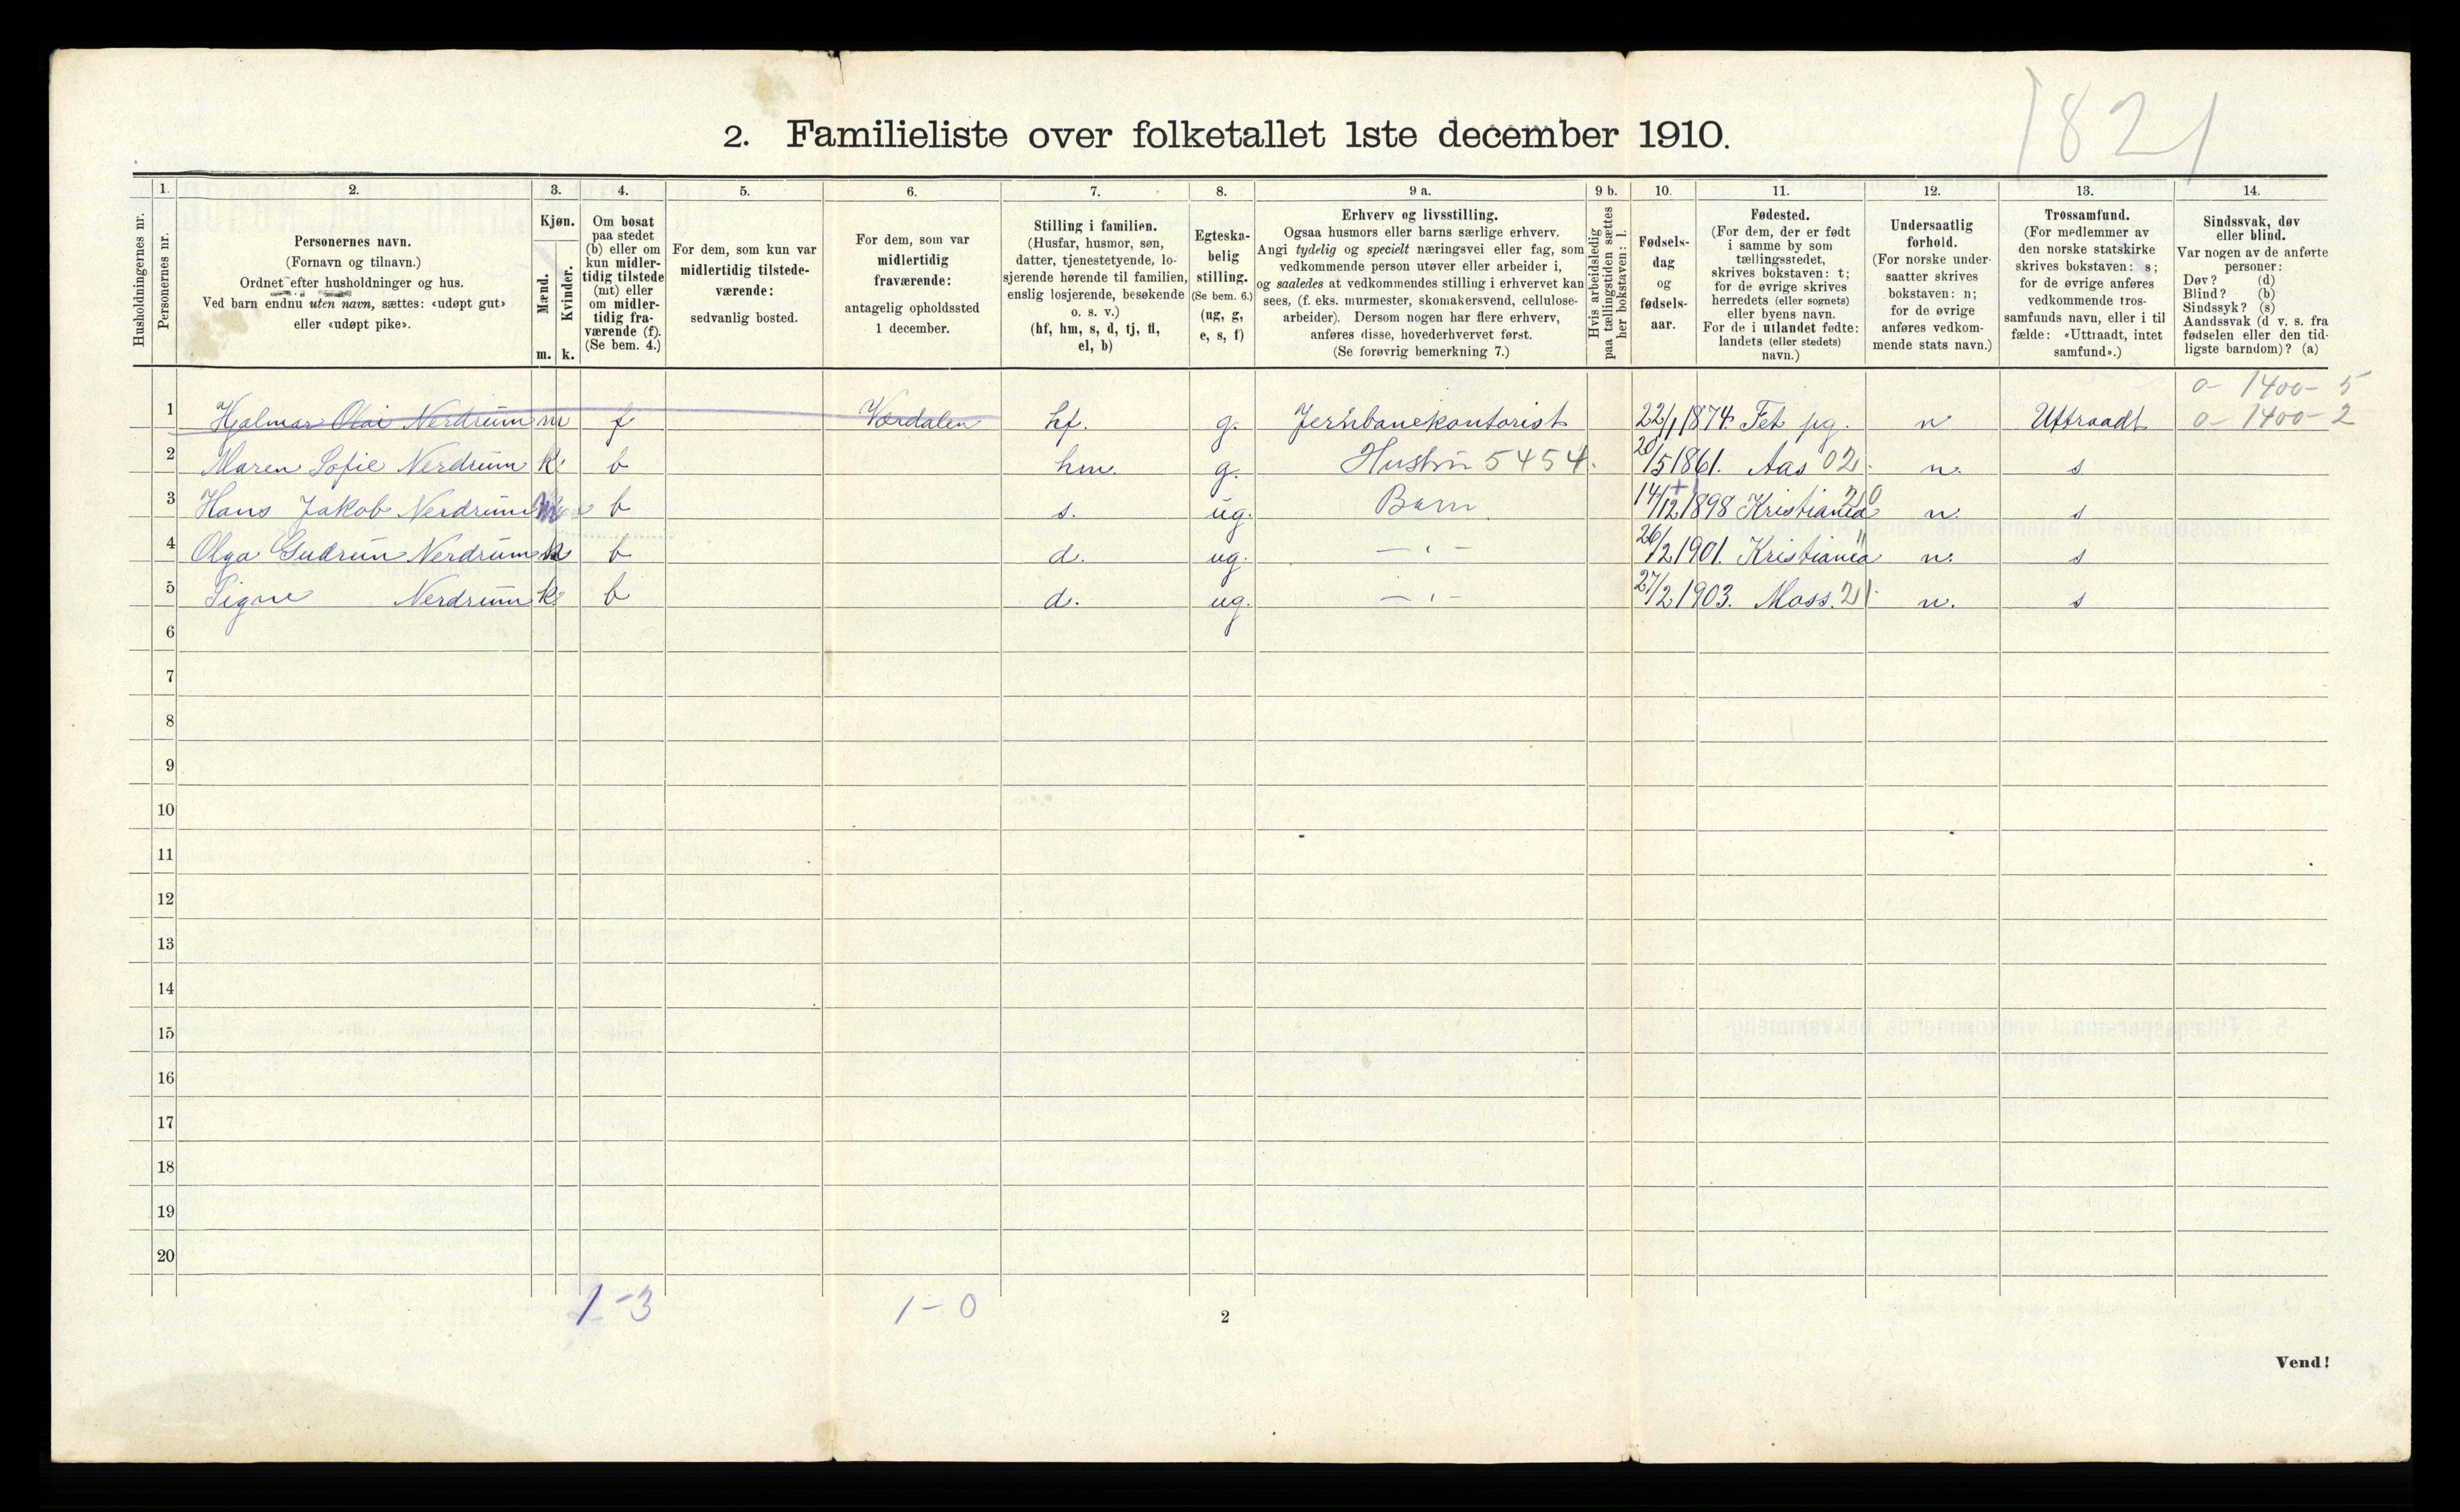 1821
2. Familieliste over folketallet 1ste december 1910.
Husholdningernes nr.
1.
Personernes nr.
2.
Personernes navn.
(Fornavn og tilnavn.)
Ordnet efter husholdninger og hus.
Ved barn endnu uten navn, sættes: «udøpt gut»
eller «udøpt pike».
3.
Kjøn.
Mænd.
Kvinder.
m. k.
4.
Om bosat
paa stedet
(b) eller om
kun midler-
tidig tilstede
(mt) eller
om midler-
tidig fra-
værende (f).
(Se bem. 4.)
5.
For dem, som kun var
midlertidig tilstede-
værende:
sedvanlig bosted.
6.
For dem, som var
midlertidig
fraværende:
antagelig opholdssted
1 december.
7.
Stilling i familien.
(Husfar, husmor, søn,
datter, tjenestetyende, lo-
sjerende hørende til familien,
enslig losjerende, besøkende
o. s. v.)
(hf, hm, s, d, tj, fl,
el, b)
8.
Egteska-
belig
stilling.
(Se bem. 6.)
(ug, g,
e, s, f)
9 a.
Erhverv og livsstilling.
Ogsaa husmors eller barns særlige erhverv.
Angi tydelig og specielt næringsvei eller fag, som
vedkommende person utøver eller arbeider i,
og saaledes at vedkommendes stilling i erhvervet kan
sees, (f. eks. murmester, skomakersvend, cellulose-
arbeider). Dersom nogen har flere erhverv,
anføres disse, hovederhvervet først.
(Se forøvrig bemerkning 7.)
9 b.
Hvis arbeidsledig
paa tællingstiden sættes
her bokstaven: l.
10.
Fødsels-
dag
og
fødsels-
aar.
11.
Fødested.
(For dem, der er født
i samme by som
tællingsstedet,
skrives bokstaven: t;
for de øvrige skrives
herredets (eller sognets)
eller byens navn.
For de i utlandet fødte:
landets (eller stedets)
navn.)
12.
Undersaatlig
forhold.
(For norske under-
saatter skrives
bokstaven: n;
for de øvrige
anføres vedkom-
mende stats navn.)
13.
Trossamfund.
(For medlemmer av
den norske statskirke
skrives bokstaven: s;
for de øvrige anføres
vedkommende tros-
samfunds navn, eller i til
fælde: «Uttraadt, intet
samfund».)
14.
Sindssvak, døv
eller blind.
Var nogen av de anførte
personer:
Døv? (d)
Blind? (b)
Sindssyk? (s)
Aandssvak (d v. s. fra
fødselen eller den tid-
ligste barndom)? (a)
0 - 1400 - 5
1 Hjalmar Olai Nerdrum m f Værdalen hf. g. Jernbanekontorist 22/1 1874. Fet pg. n Uttraadt 0 - 1400 - 2
2 Maren Sofie Nerdrum k. b hm. g. Hustru 5454. 20/5 1861. Aas 02. n. s
3 Hans Jakob Nerdrum m b s. ug. Barn 14/12 1898 Kristiania 20 n. s
4 Olga Gudrun Nerdrum k b d. ug. — " — 26/2 1901. Kristiania " n. s
5 Signe Nerdrum k. b d. ug. — " — 27/2 1903. Moss. 21. n. s
6
7
8
9
10
11
12
13
14
15
16
17
18
19
20
1 - 3
1 - 0
2
Vend!